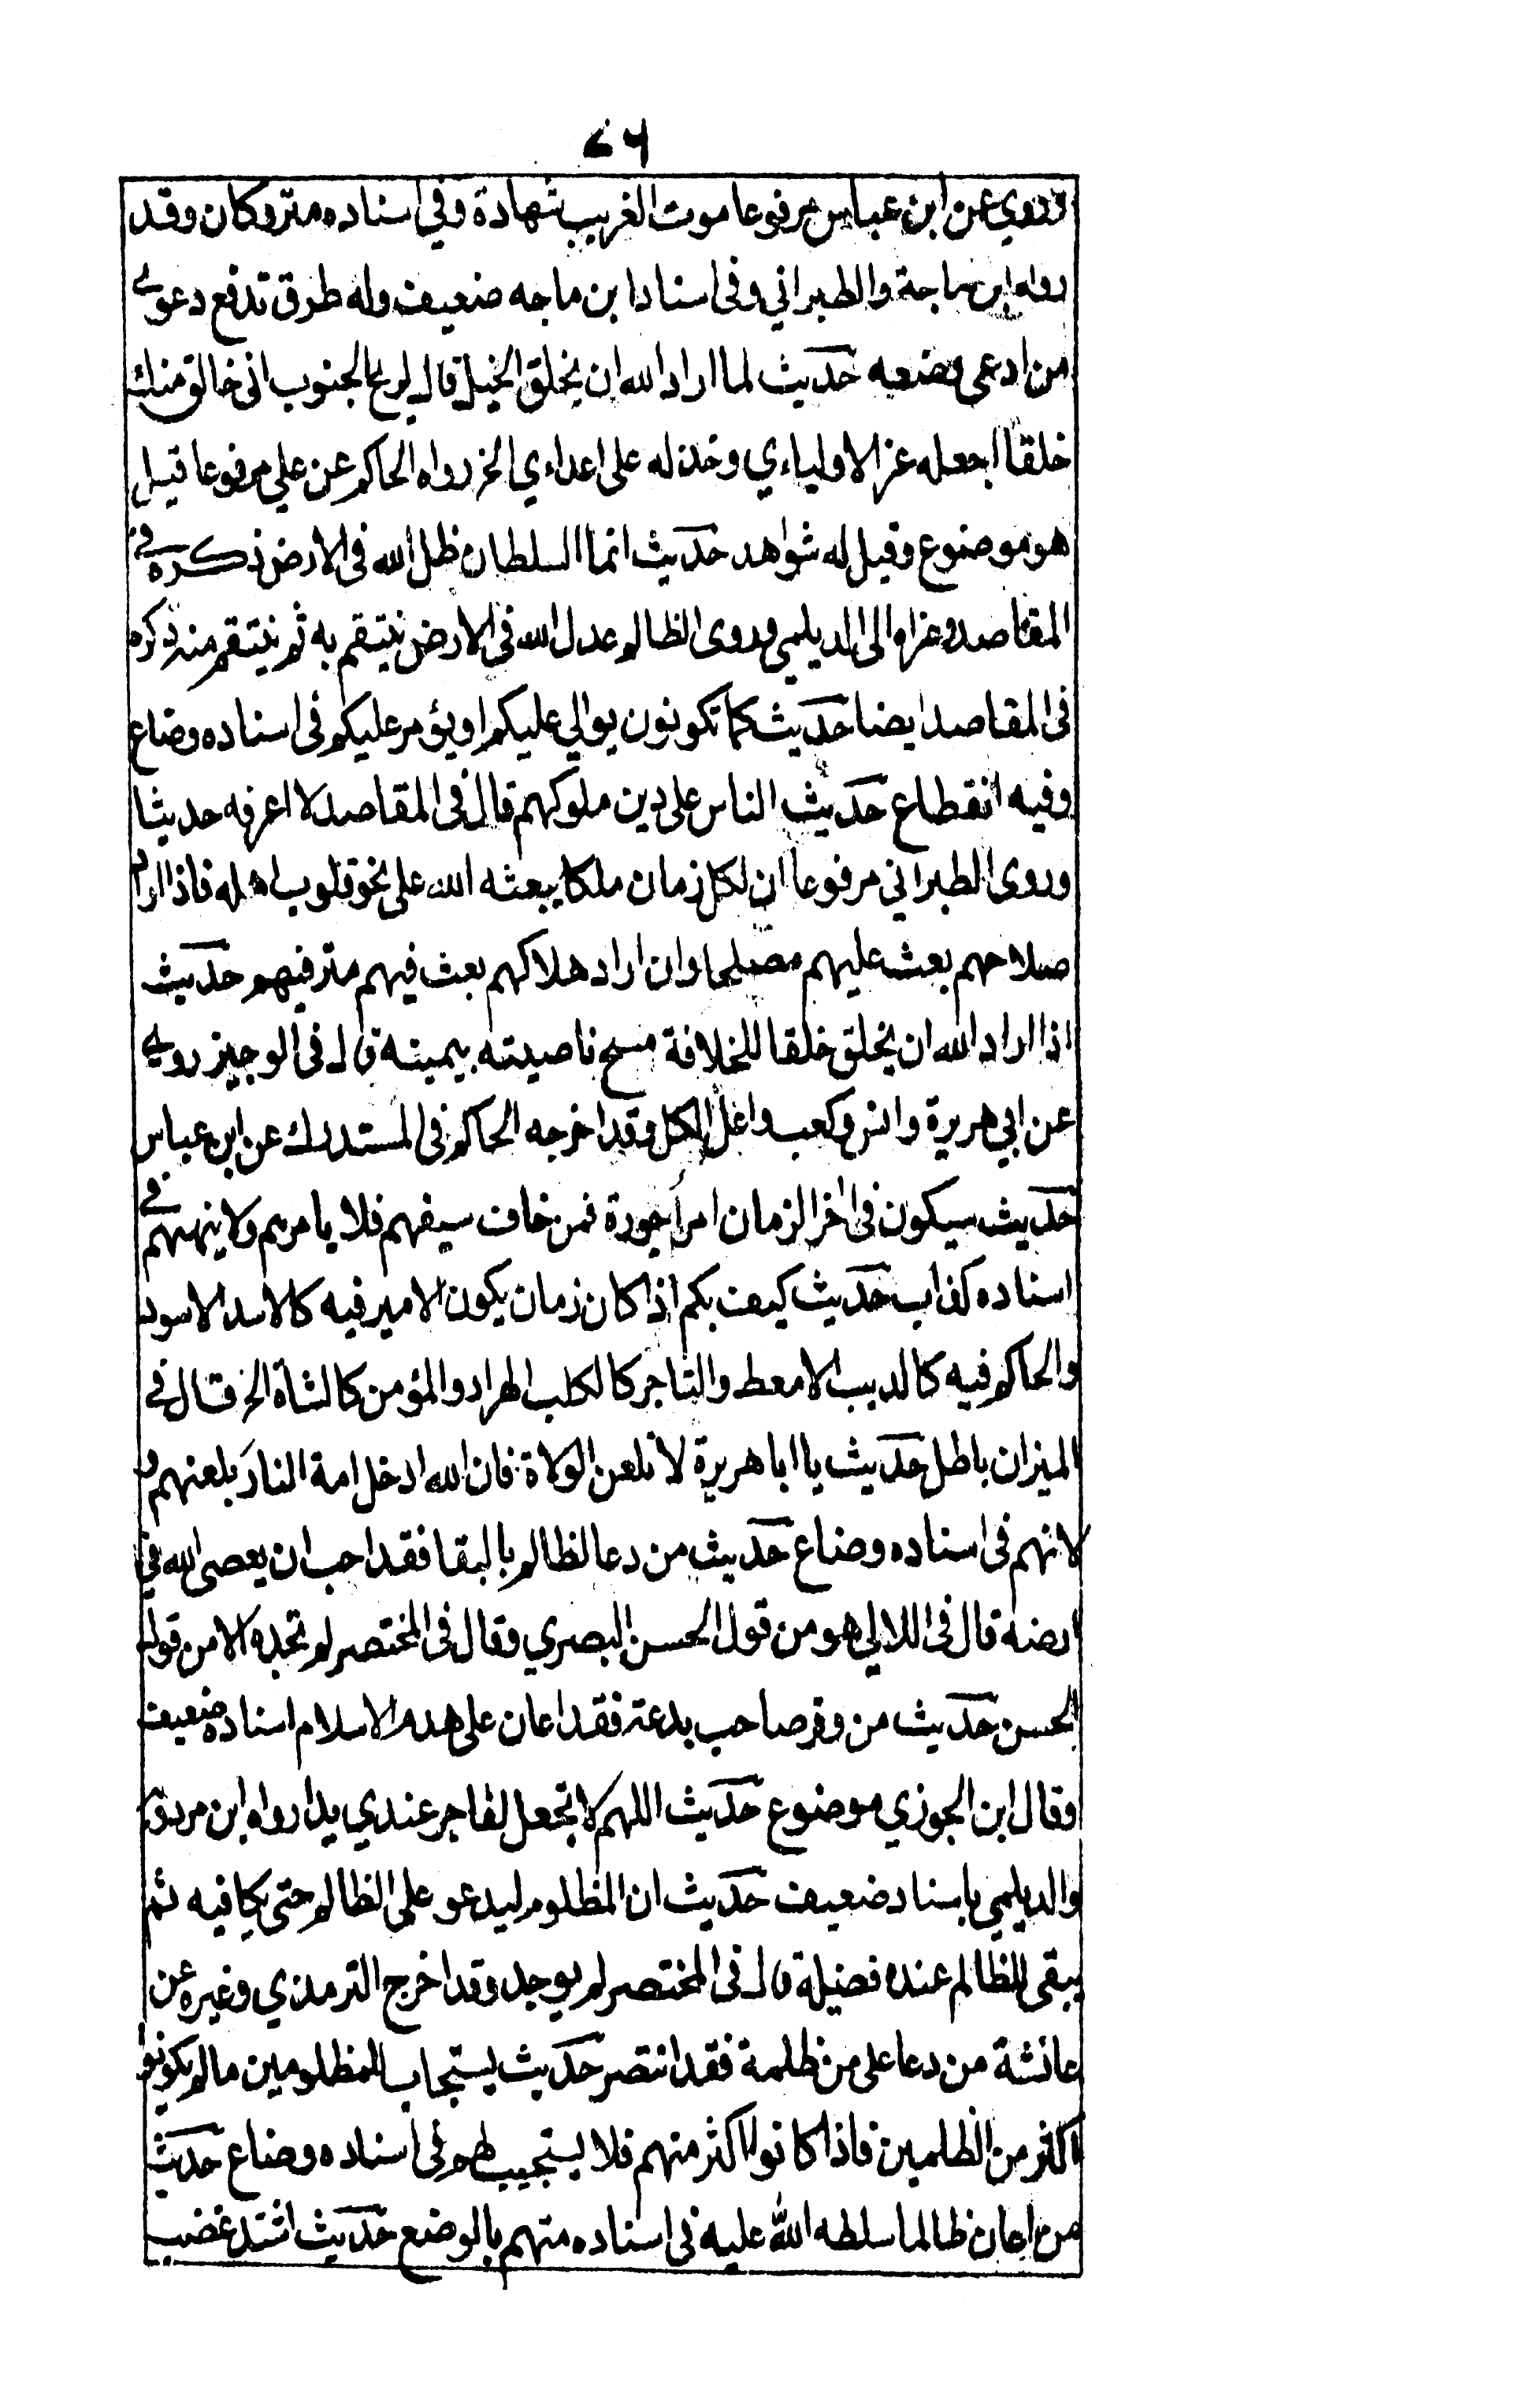 ٧٦
وروي عن ابن عباس مرفوعا موت الغريب شهادة وفي اسناده متروكان وقد
رواه ابن ماجة والطبراني وفى اسناد ابن ماجه ضعيف وله طرق تدفع دعوى
من ادعى وضعيه حديث لما اراد الله ان يخلق الخيل قال لريح الجنوب انى خالق منك
خلقا اجعله عز الاوليائي وخذله على اعداءي الخ رواه الحاكم عن علي مرفوعا قيل
هو موضوع وقيل له شواهد حديث انما السلطان ظل الله فى الارض ذكره في
المقاصد وعزاه الى الديلمي وروى الظالم عدل الله فى الارض ينتقم به ثم ينتقم منه ذكره
فى المقاصد ايضا حديث كما تكونون يوالي عليكم او يؤمر عليكم فى اسناده وضاع
وفيه انقطاع حديث الناس على دين ملوكهم قال فى المقاصد لا اعرفه حديثا
وروى الطبراني مرفوعا ان لكل زمان ملكا يبعثه الله على نحو قلوب اهله فاذا اراد
صلاحهم بعث عليهم مصلحا وان اراد هلاكهم بعث فيهم مترفيهم حديث
اذا اراد الله ان يخلق خلقا للخلافة مسح ناصيته بيمينه قال فى الوجيز روى
عن ابي هريرة وانس وكعب واعل الكل وقد اخرجه الحاكم فى المستدرك عن ابن عباس
حديث سيكون فى اخر الزمان امرا جورة فمن خاف سيفهم فلا يامرهم ولا ينههم في
اسناده كذاب حديث كيف بكم اذا كان زمان يكون الامير فيه كالاسد الاسود
والحاكم فيه كالديب الامعط والتاجر كالكلب الهرار والمؤمن كالشاة الخ قال في
الميزان باطل حديث يا ابا هريرة لا تلعن الولاة فان الله ادخل امة النار بلعنهم و
لاتهم فى اسناده وضاع حديث من دعا لظالم بالبقا فقد احب ان يعصى الله في
ارضه قال فى اللالي هو من قول الحسن البصري وقال فى المختصر لم نجده الا من قول
الحسن حديث من وقر صاحب بدعة فقد اعان على هدم الاسلام اسناده ضعيف
وقال ابن الجوزي موضوع حديث اللهم لا تجعل لفاجر عندي يدا رواه ابن مردويه
والديلمي باسناد ضعيف حديث ان المظلوم ليدعو على الظالم حتى يكافيه ثم
يبقى للظالم عنده فضيلة قال فى المختصر لم يوجد وقد اخرج الترمذي وغيره عن
عائشة من دعا على من ظلمه فقد انتصر حديث يستجاب للمظلومين مالم يكونوا
اكثر من الظلمين فاذا كانوا اكثر منهم فلا يستجيب لهم فى اسناده وضاع حديث
من اعان ظالما سلطه الله عليه فى اسناده متهم بالوضع حديث اشتد غضب